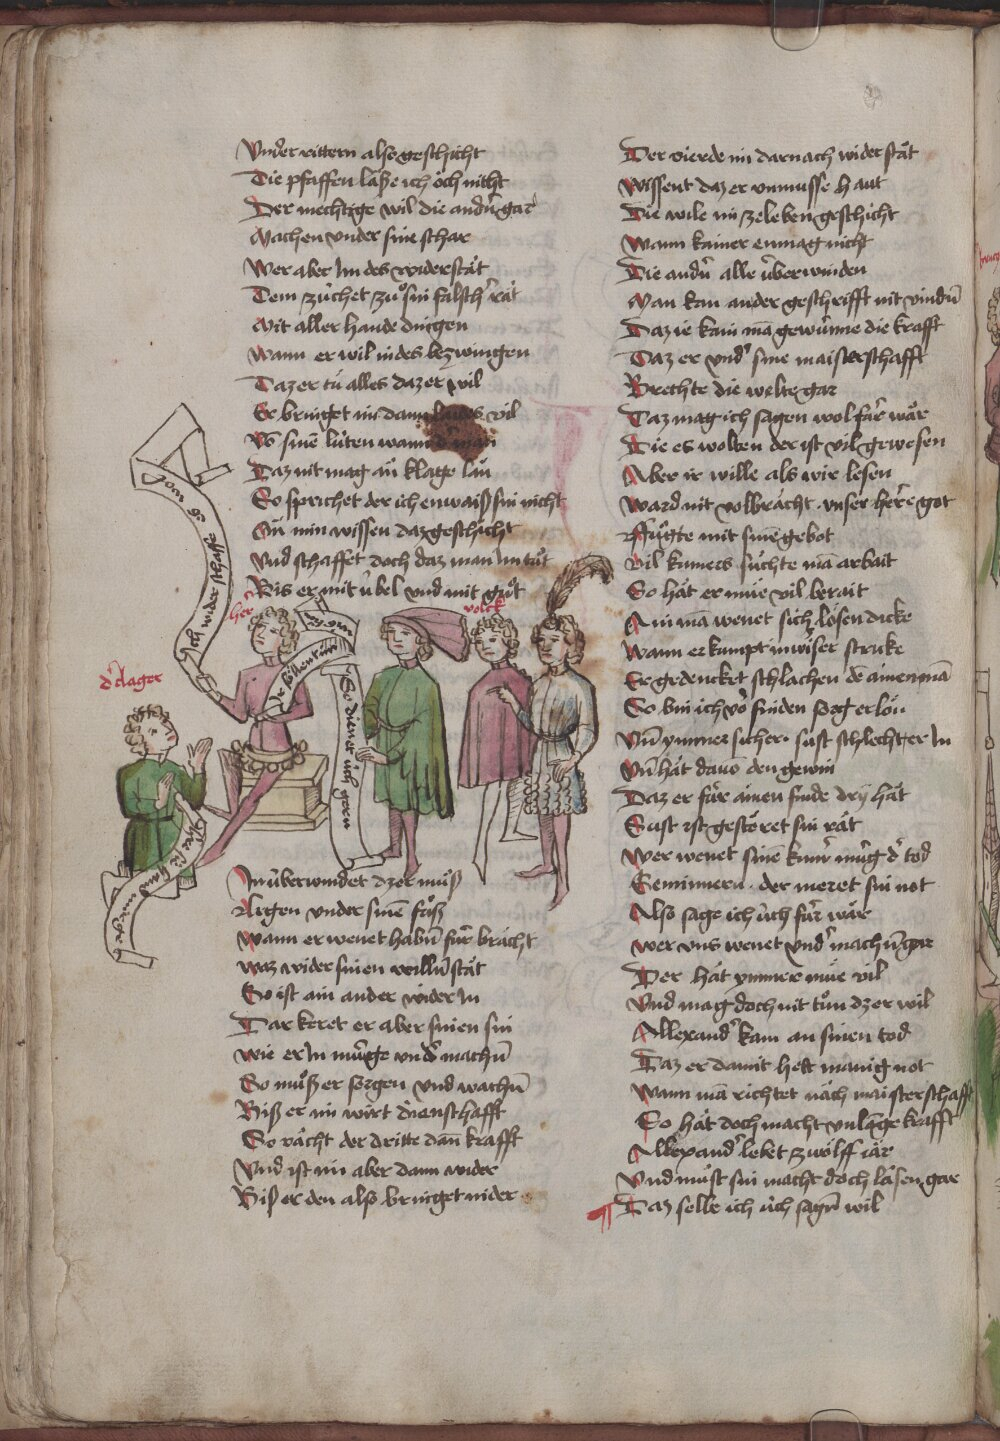 Vnder rittern also geschicht
Die pfaffen lasze ich och nitht
Der mechtige wil die andn̄ gar
Machen vnder sine schar
Wer aber Im des widerstät
Dem züchet zů sin falsch' rät
Mit aller hande dingen
Wann er wil in des bezwingen
Daz er tü alles daz er wil
Er bringet im dann laides vil
Vō sinē lüten wann d' man
Daz nit mag an klage län
So sprichet der ich enwaisz sin nicht
On min wissen daz geschicht
Vnd schaffet doch daz man Im tůt
Bis er mit übel vnd mit gůt
her
volck
d' clager
Ich wider schaffe
So dienet üch gern
In überwindet dz er můsz
Ligen vnder sinē fůsz
Wann er wenet habn̄ für brächt
Waz wider sinen willn̄ stät
So ist ain ander wider In
Dar keret er aber sinen sin
Wie er In müge vnd' machn̄
So můsz er sorgen vnd wachn̄
Bisz er im wirt diensthafft
So rächt der dritte dañ krafft
Vnd ist im aber dann wider
Bisz er den also bringet nider
Der vierde im darnach widerstät
Wissent daz er vnmusse haut
Die wile im ze leben geschicht
Wann kainer enmag nicht
Die andn̄ alle überwinden
Man kan ander geschrifft nit vindn̄
Daz ie kain mā gewünne die krafft
Daz er vnd' sine maisterschafft
Brechte die welte gar
Daz mag ich sagen wol für wär
Die es wolten der ist vil gewesen
Aber ir wille als wir lesen
Ward nit volbrächt vnser herre got
Fůgte mit sinē gebot
Vil kumers sůchte mā arbait
So hät er müe vil berait
Ain mā wenet sich lösen dicke
Wann er kumpt in wiser stricke
Er gedencket schlachen dē ainen mā
So bin ich vō sinden sorg erlön
Vn̄ ymmer sicher sust schlecht er In
Vn̄ hät davō den gewin
Daz er für ainen finde dry hät
Sust ist gestöret sin rät
Wer wenet sinē kum' müg d' tod
Geminnern der meret sin not
Also sage ich üch für wär
Wer vns wenet vnd' machn̄ gar
Der hät ymmer müe vil
Vnd mag doch nit tůn dz er wil
Allexand' kam an sinen tod
Daz er damit hett manig not
Wann mā richtet näch maisterschafft
So hät doch macht vnlāge krafft
Allexand' lebet zwölff iär
Vnd můst sin macht doch läsen gar
Daz selb ich üch sagn̄ wil